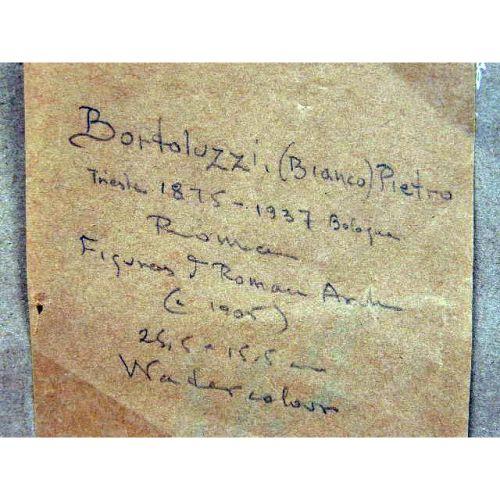 Bortoluzzi, (Bianco) Pietro
Trieste 1875 - 1937 Bologna
Roma
Figures & Roman Arch
(c 1905)
25,5 x 15,5 cm
Wadercolour